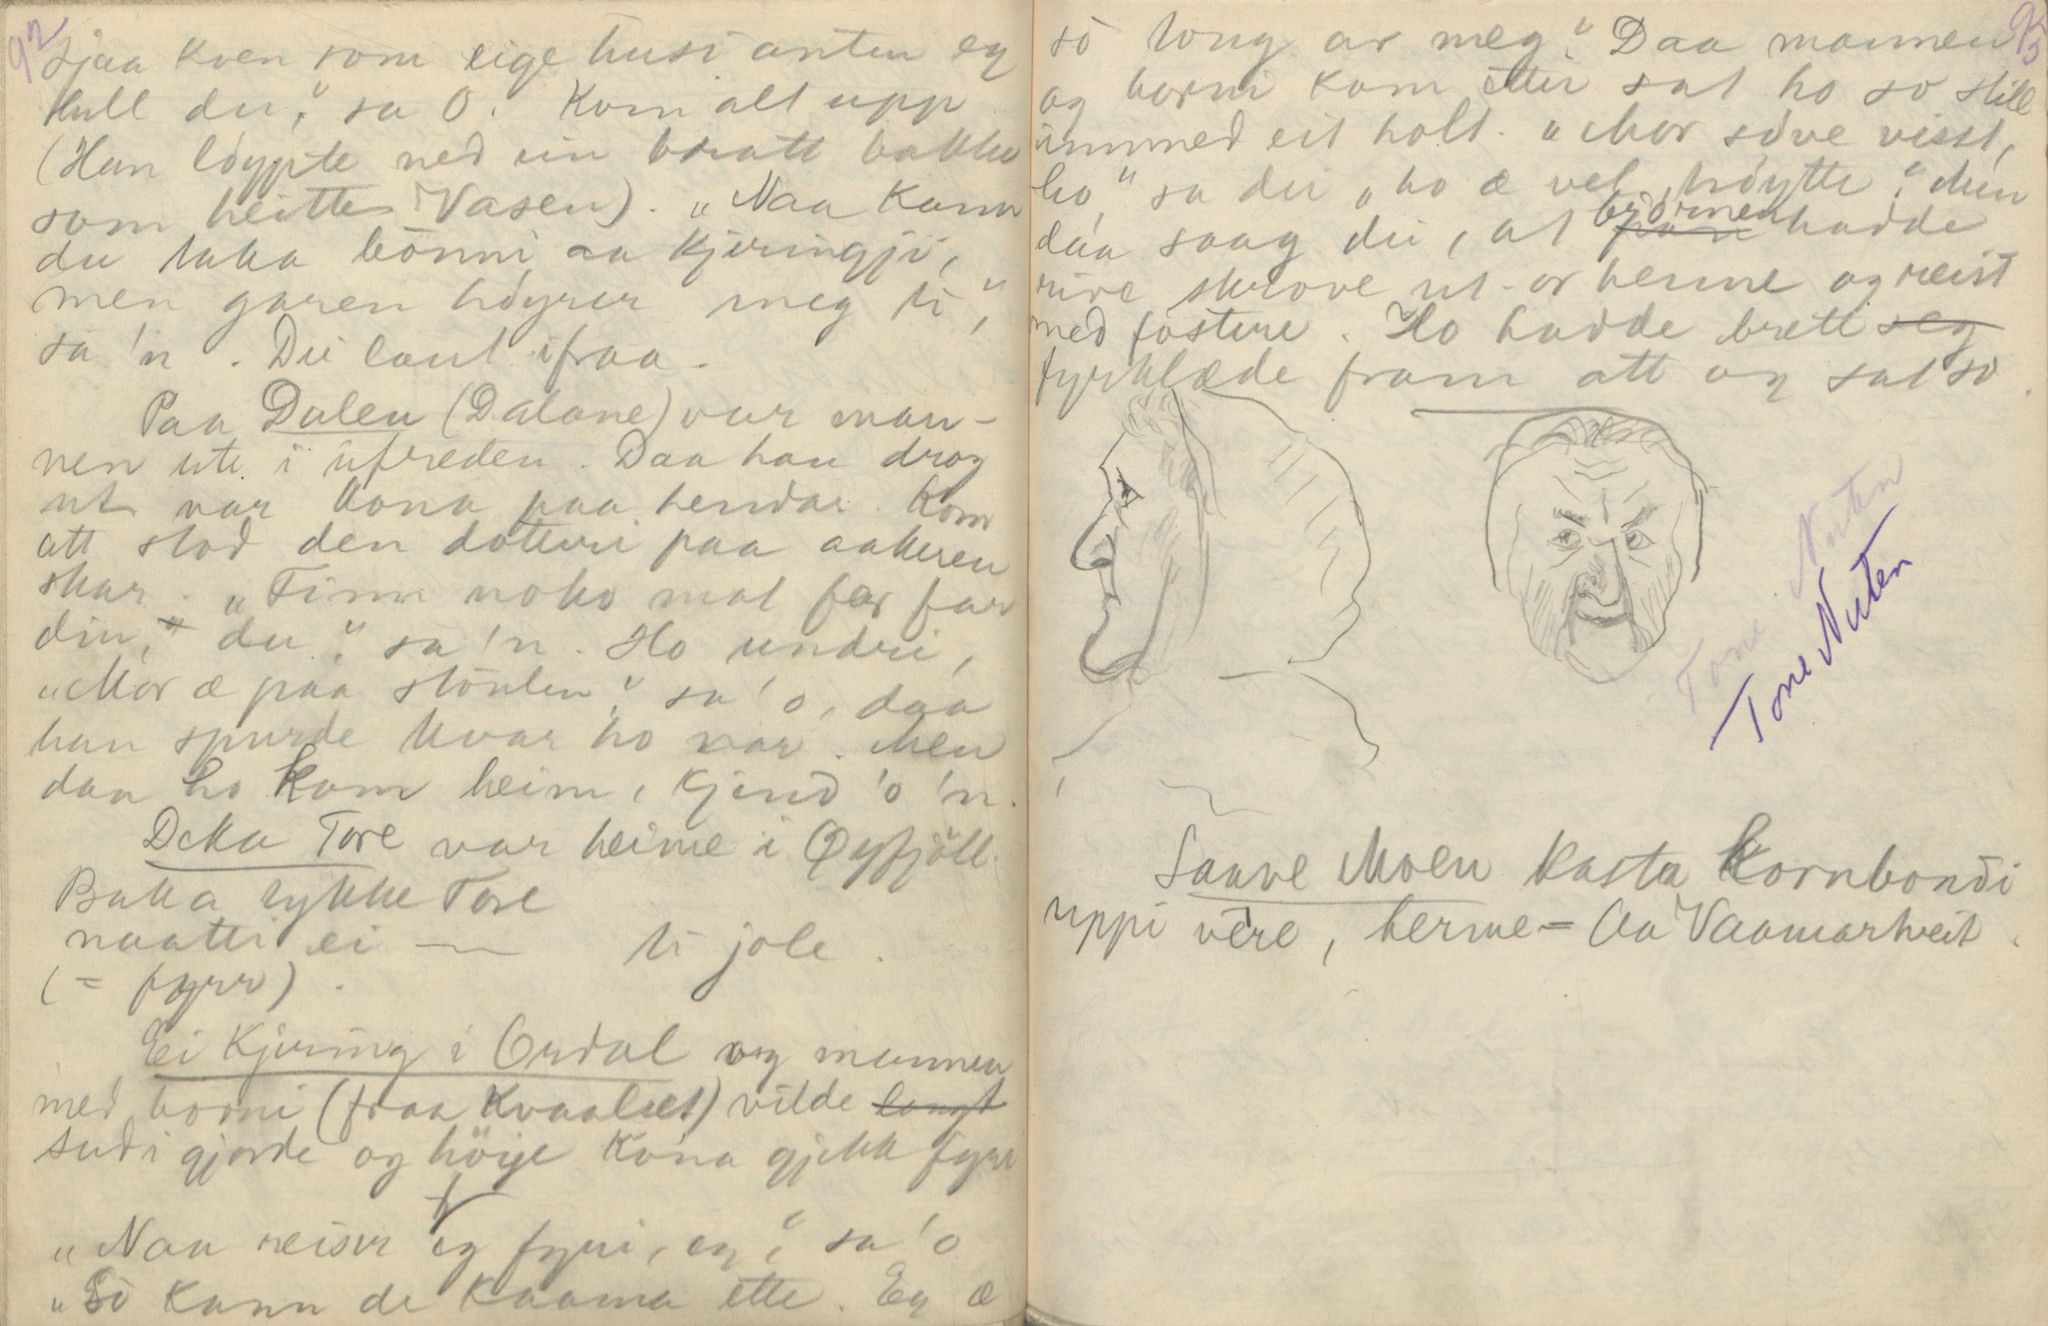 92
sjaa kven som eige husi anten eg
hell du," sa O. Kom alt upp
(Han löypte ned ein bratt bakke
som heitte Vasen). "Naa kann
du taka bönni aa kjeringji,
men garen höyrer meg ti",
sa 'n. Dei laut ifraa.
Paa Dalen (Dalane) var man-
nen ute i ufreden. Daa han drog
ut var kona paa hendar. Kom
att stod den dotteri paa aakeren
skar. "Finn noko mat før far
din, du", sa 'n. Ho undri,
"Mor æ paa stöulen", sa 'o, daa
han spurde kvar ho var. Men
daa ho kom heim, kjend 'o 'n.
Deka Tore var heime i Øyfjöll.
Baka lykke Tore
naatti ei — ti jole.
(= fyrr).
Ei kjering i Ordal og mannen
med borni (fraa Kvaalset) vilde langt
sud i gjorde og höye Kona gjekk fyrr
"Naa reiser eg fyri, eg", sa 'o
"So kann de kaama ette. Eg æ
93
so tong av meg". Daa mannen
og borni kom etti sat ho so still
innmed eit holt. "Mor söve visst,
ho," sa dei "ho æ vel tröytte". Men
daa saag dei, at björnen hadde
rive skrove ut or henne og reist
med fostere. Ho hadde brett seg
fyrklæde fram att og sat so.
Tone Nuten
Tone Nuten
Saave Moen kasta kornbondi
uppi vère, herme = Aa Vaamarheit.